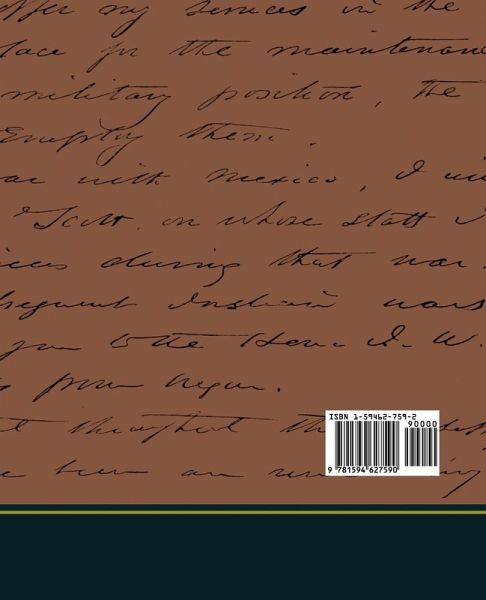 offer my services in the
place for the maintenance
military position, the
Employ them.
war with Mexico, I
Scott, on whose Staff I
during that war.
Indian wars
to the Hon. I. W.
throughout the
been an
ISBN 1-59462-759-2
90000
9 781594 627590